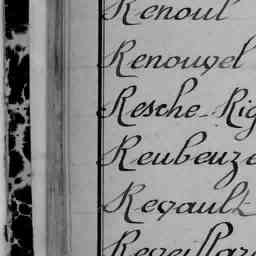 Renoul
Renouvel
Resche-Rig
Reubeuze
Revault
Reveillar